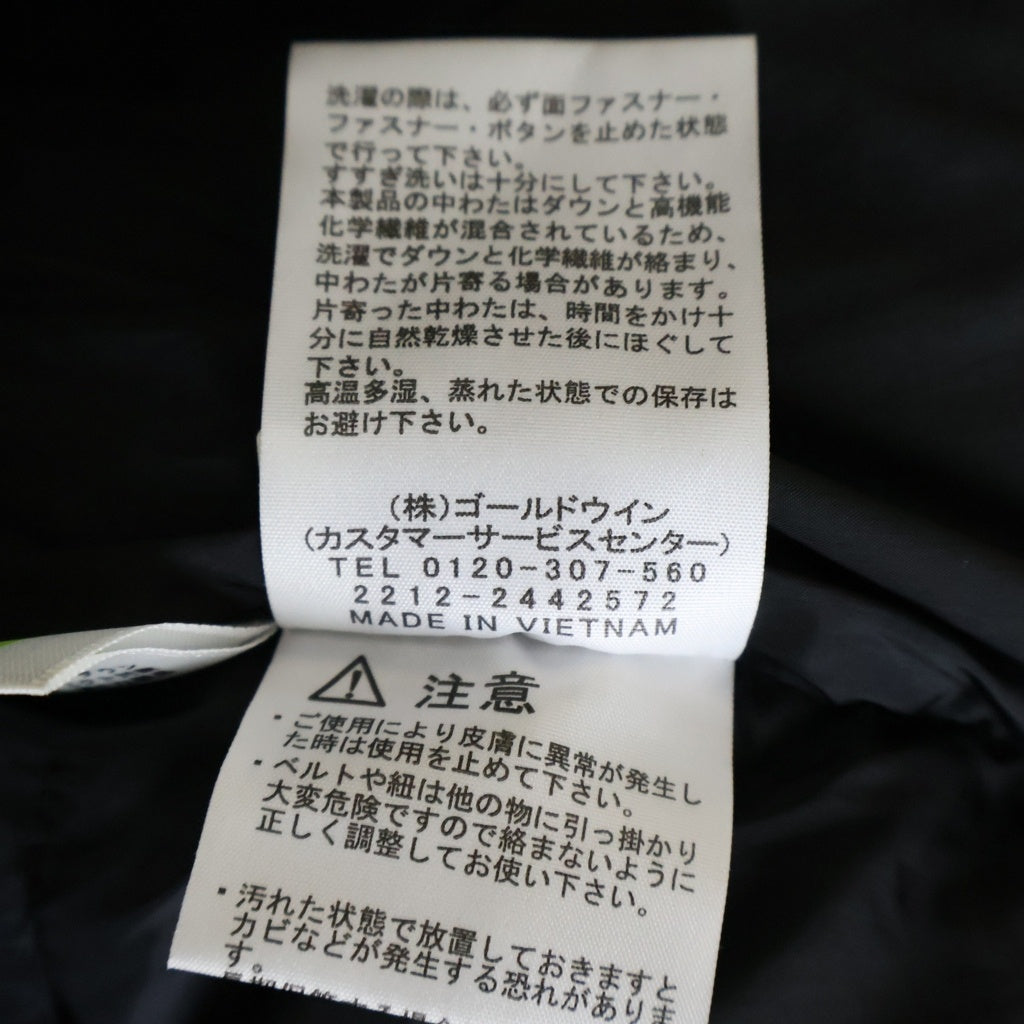 洗濯の際は、必ず面ファスナー・
ファスナー・ボタンを止めた状態
で行って下さい。
すすぎ洗いは十分にして下さい。
本製品の中わたはダウンと高機能
化学繊維が混合されているため、
洗濯でダウンと化学繊維が絡まり、
中わたが片寄る場合があります。
片寄った中わたは、時間をかけ十
分に自然乾燥させた後にほぐして
下さい。
高温多湿、蒸れた状態での保存は
お避け下さい。
(株)ゴールドウイン
(カスタマーサービスセンター)
TEL 0120-307-560
2212-2442572
MADE IN VIETNAM
注意
・ご使用により皮膚に異常が発生し
た時は使用を止めて下さい。
・ベルトや紐は他の物に引っ掛かり
大変危険ですので絡まないように
正しく調整してお使い下さい。
・汚れた状態で放置しておきますと
カビなどが発生する恐れがありま
す。